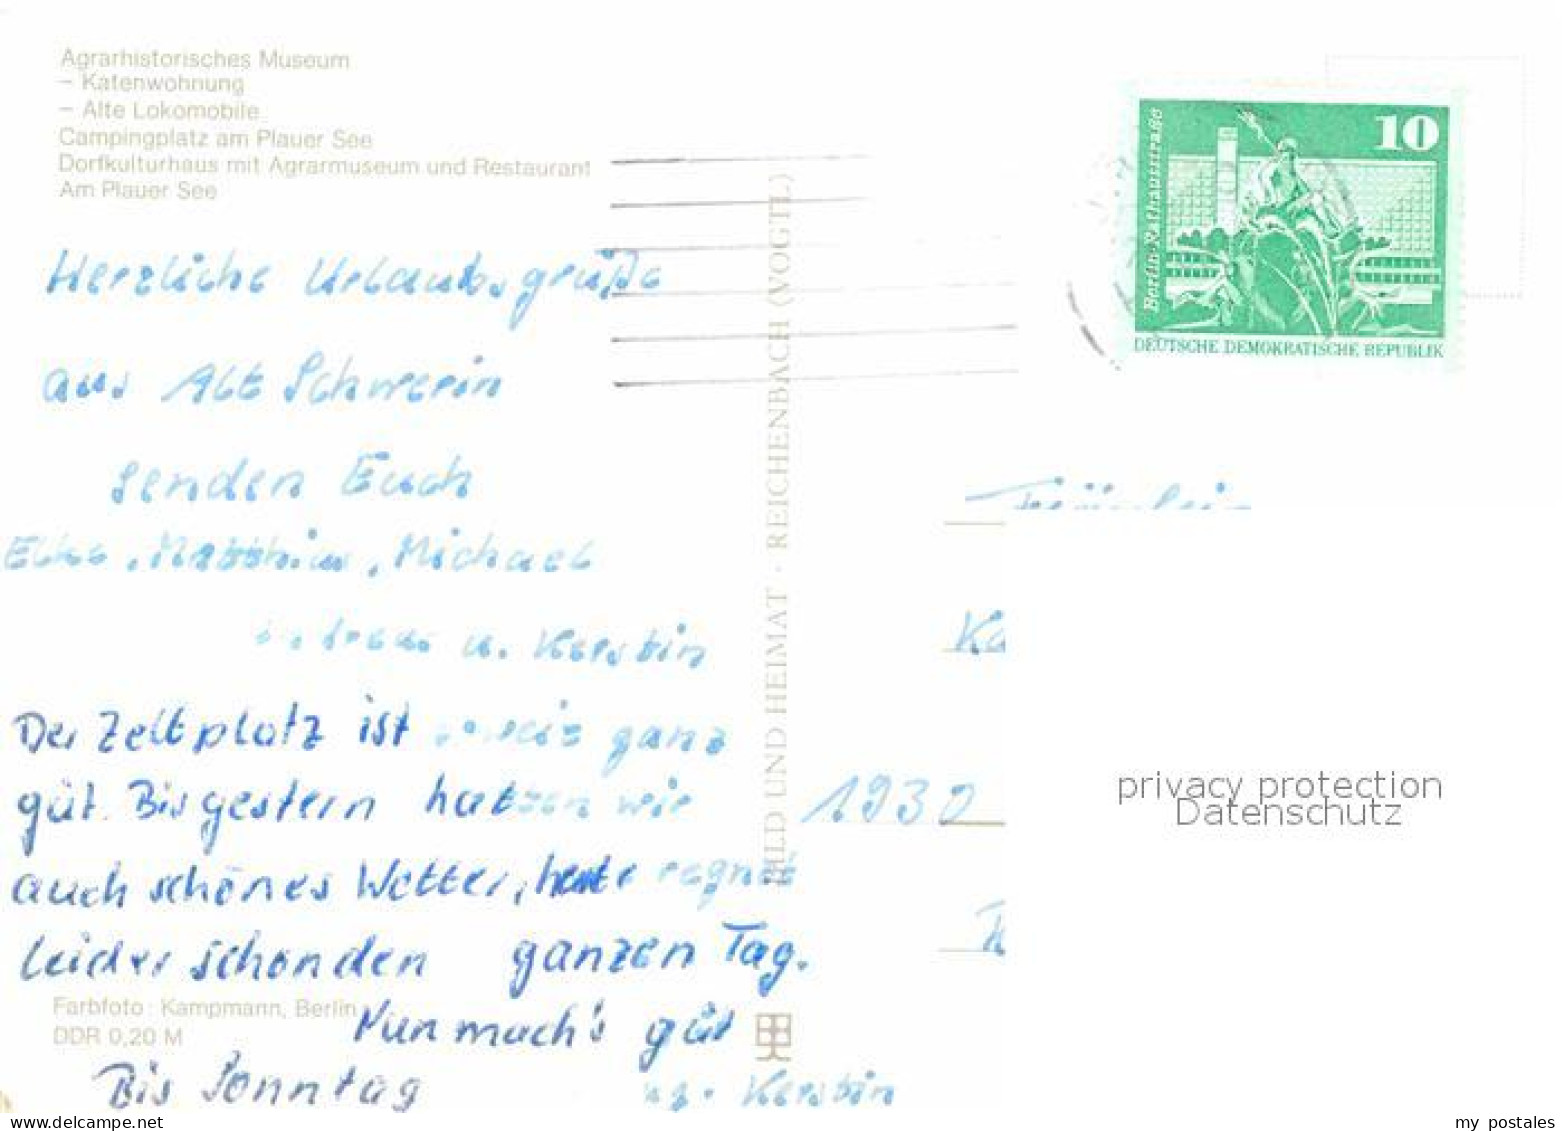 Agrarhistorisches Museum
– Katenwohnung
– Alte Lokomobile
Campingplatz am Plauer See
Dorfkulturhaus mit Agrarmuseum und Restaurant
Am Plauer See
10
Berlin · Rathausstraße
DEUTSCHE DEMOKRATISCHE REPUBLIK
Herzliche Urlaubsgrüße
aus Alt Schwerin
senden Euch
Elke, Matthias, Michael
u. Kerstin
Der Zeltplatz ist ganz
güt. Bis gestern hatten wir
auch schönes Wetter, heute regnet
leider schon den ganzen Tag.
Nun mach's güt
Bis Sonntag
Kerstin
Farbfoto: Kampmann, Berlin
DDR 0,20 M
BILD UND HEIMAT · REICHENBACH (VOGTL)
Fräulein
Ka
1930
privacy protection
Datenschutz
my postales